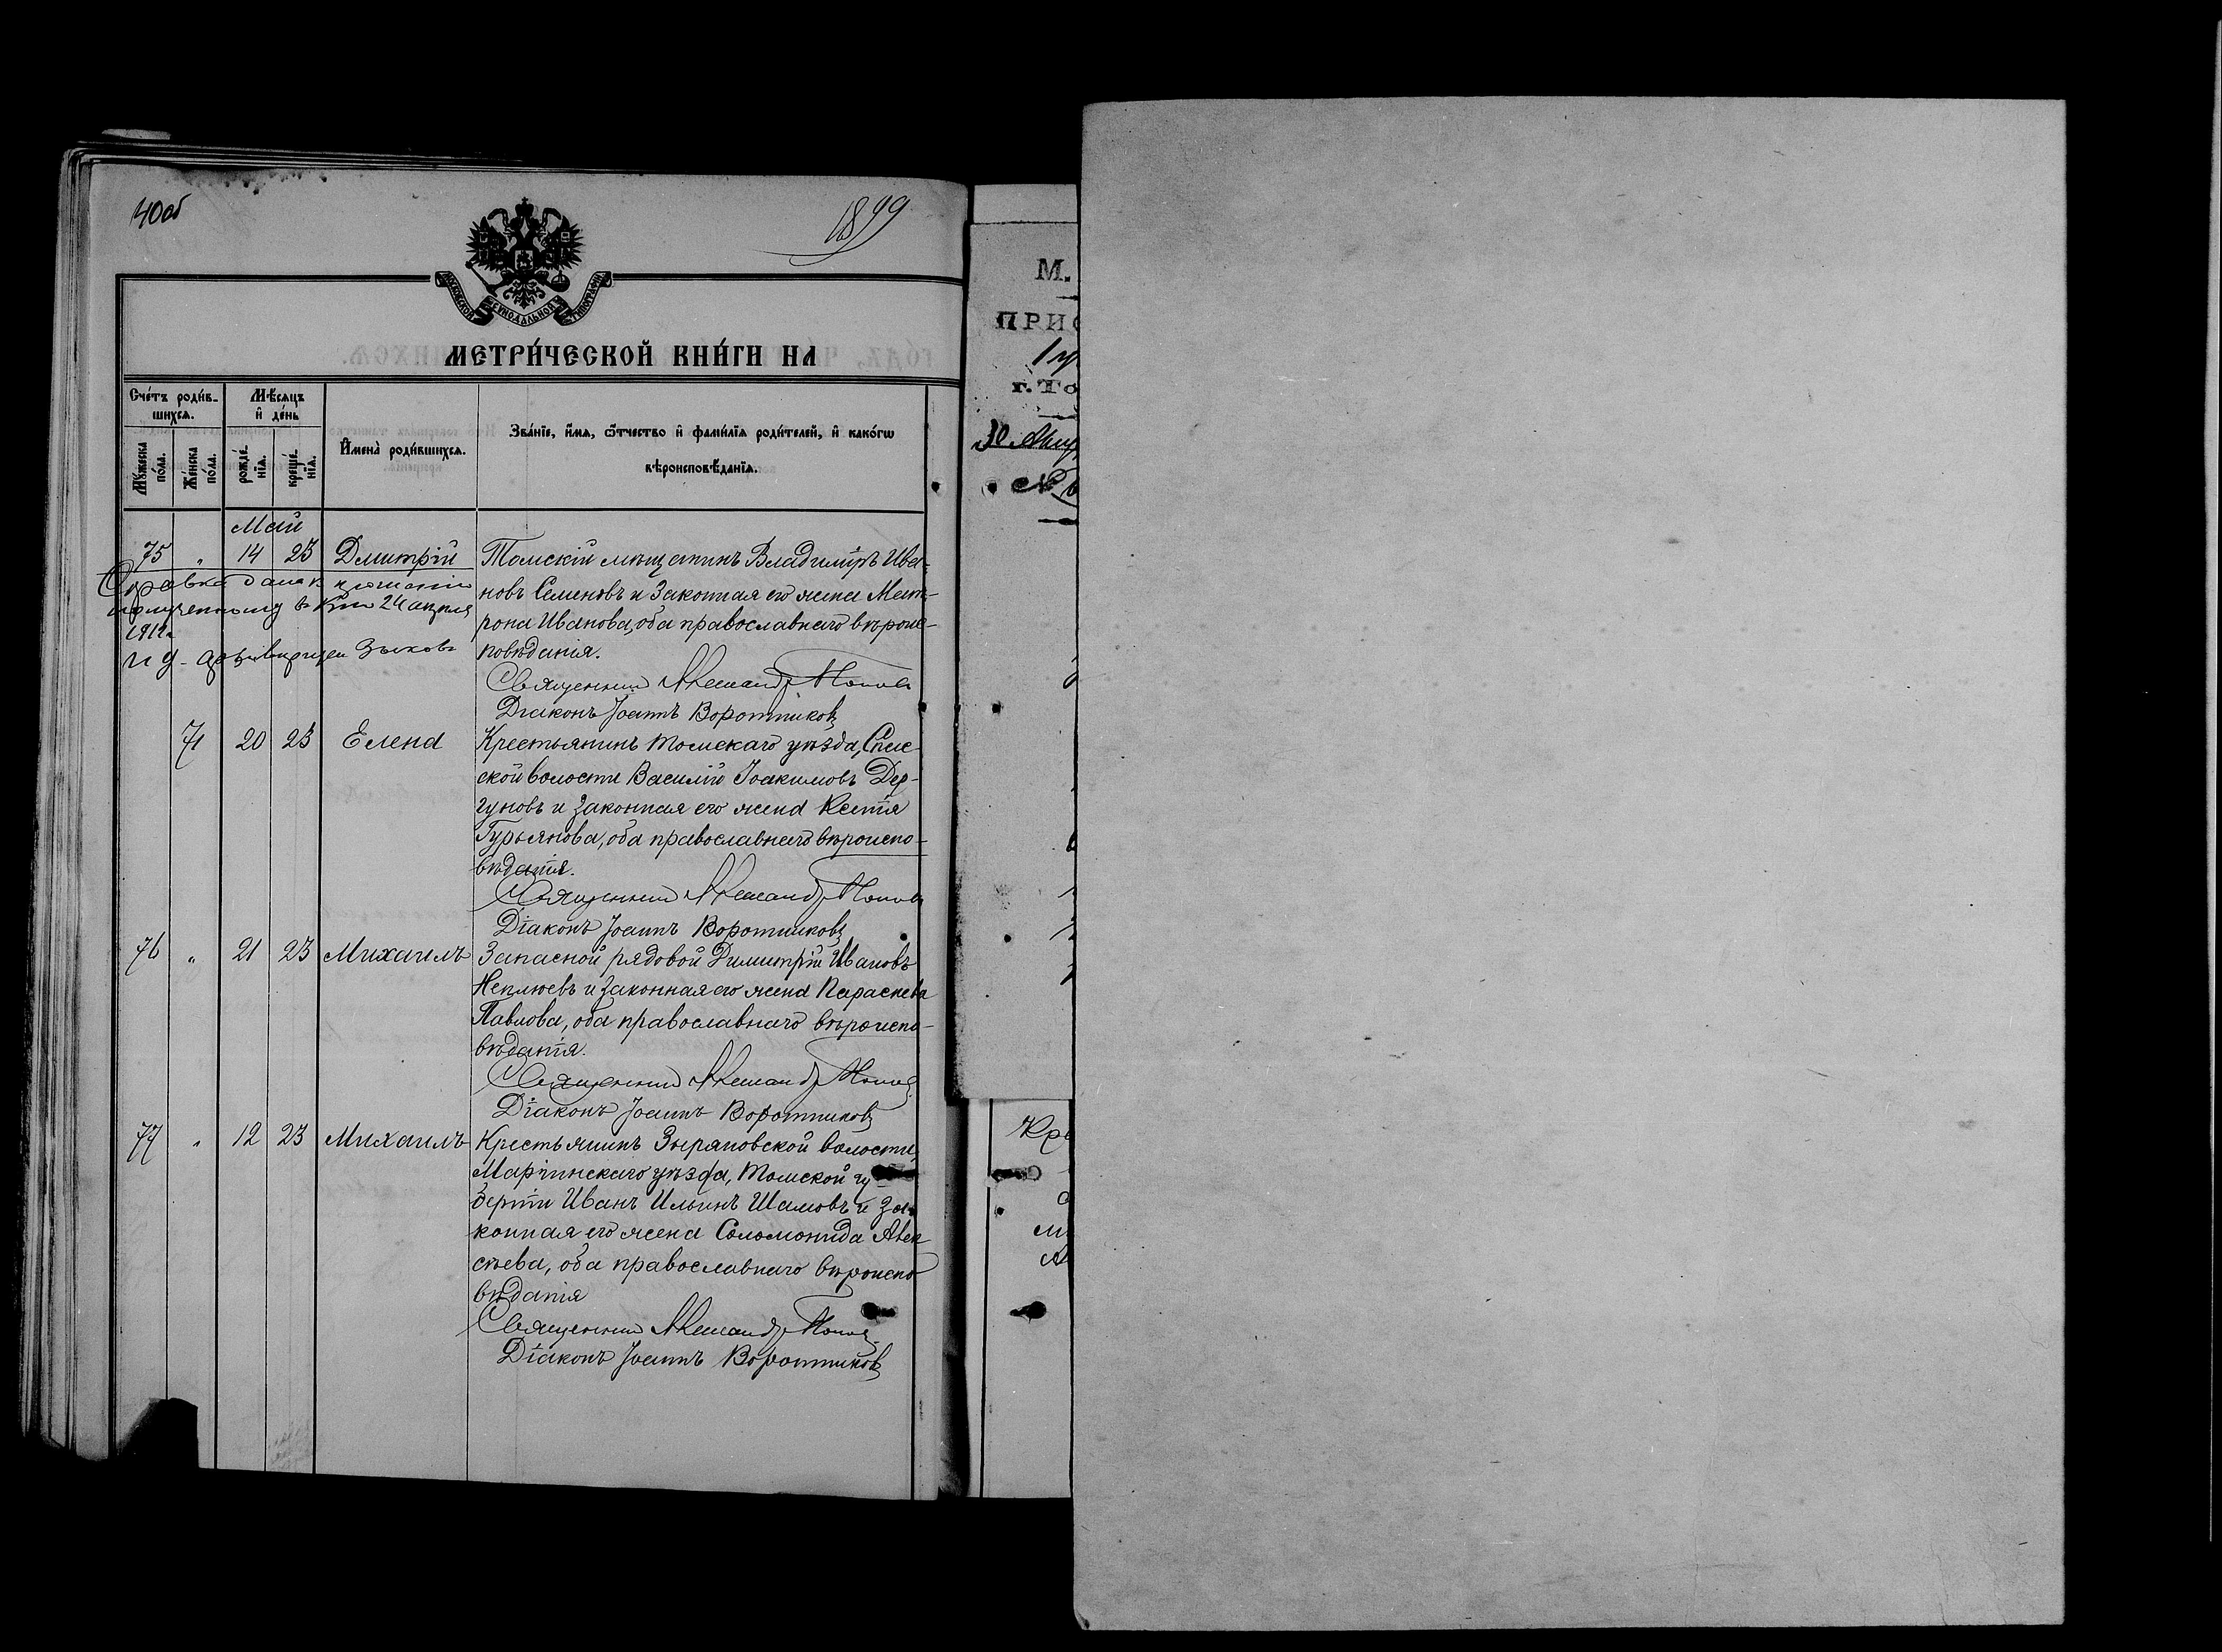 40об
1899
МОСКОВСКОЙ СѴНОДАЛЬНОЙ ТИПОГРАФІИ
МЕТРИ́ЧЕСКОЙ КНИ́ГИ НА
Сче́тъ роди́в-
шихсѧ.
Мѣ́сѧцъ
и҆ де́нь
Мꙋ́жеска
по́ла.
Же́нска
по́ла.
рожде́-
нїѧ.
креще́-
нїѧ.
И҆мена̀ роди́вшихсѧ.
Зва́нїе, и҆́мѧ, ѻ҆́тчество и҆ фами́лїѧ роди́телей, и҆ како́гѡ
вѣроисповѣ́данїѧ.
Май
75 " 14 23 Дмитрій
Томскій мѣщанинъ Владиміръ Ива-
новъ Семеновъ и законная его жена Мат-
рона Иванова, оба православнаго вѣроис-
повѣданія.
Справка дана к прошенію
полученному в 24 апреля
1912 г.
Зыковъ
Священникъ Александръ Поповъ
Діаконъ Іоаннъ Воротниковъ
71 20 23 Елена
Крестьянинъ Томскаго уѣзда, Спас-
ской волости Василій Іоакимовъ Дер-
гуновъ и законная его жена Ксенія
Гурьянова, оба православнаго вѣроиспо-
вѣданія.
Священникъ Александръ Поповъ
Діаконъ Іоаннъ Воротниковъ
76 " 21 23 Михаилъ
Запасной рядовой Димитрій Ивановъ
Неплюевъ и законная его жена Параскева
Павлова, оба православнаго вѣроиспо-
вѣданія.
Священникъ Александръ Поповъ
Діаконъ Іоаннъ Воротниковъ
77 " 12 23 Михаилъ
Крестьянинъ Зыряновской волости,
Маріинскаго уѣзда, Томской гу-
берніи Иванъ Ильинъ Шамовъ и за-
конная его жена Соломонида Алек-
сѣева, оба православнаго вѣроиспо-
вѣданія
Священникъ Александръ Поповъ
Діаконъ Іоаннъ Воротниковъ
М.
ПРИС
г. То
30
№
Кре